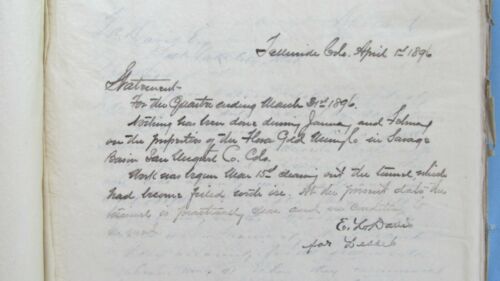 Telluride Colo. April 1st 1896
Statement-
For the Quarter ending March 31st 1896.
Nothing has been done during January and February
on the properties of the Flora Gold Mining Co in Savage
Basin San Miguel Co. Colo.
Work was begun Mar 15th cleaning out the tunnel which
had become filled with ice. At the present date the
tunnel is practically clear and in
E. L. Davis
for